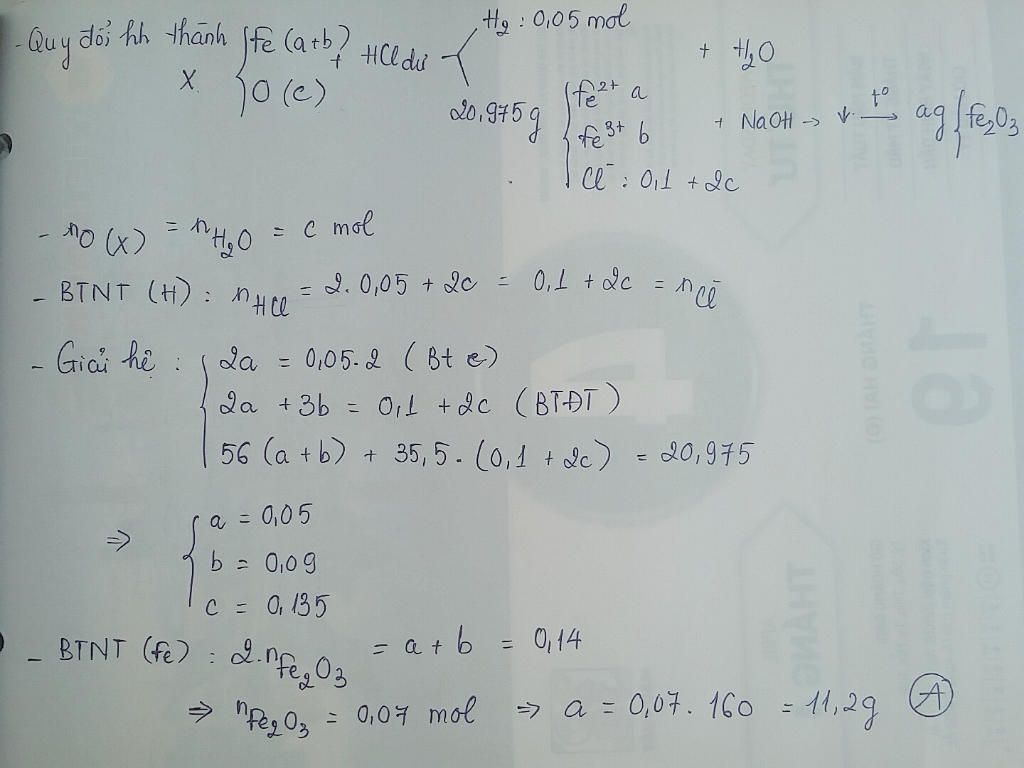 - Quy đổi hh thành { Fe (a+b) + HCl dư
X { O (c)
H₂ : 0,05 mol
+ H₂O
20,975g { Fe²⁺ a
Fe³⁺ b
Cl⁻ : 0,1 + 2c
+ NaOH → ↓ t° → ag { Fe₂O₃
- nO (X) = nH₂O = c mol
- BTNT (H) : nHCl = 2. 0,05 + 2c = 0,1 + 2c = nCl⁻
- Giải hệ : { 2a = 0,05.2 ( Bt e)
2a + 3b = 0,1 + 2c ( BTĐT )
56 (a + b) + 35,5 . (0,1 + 2c ) = 20,975
⇒ { a = 0,05
b = 0,09
c = 0,135
- BTNT (Fe) : 2.nFe₂O₃ = a + b = 0,14
⇒ nFe₂O₃ = 0,07 mol ⇒ a = 0,07. 160 = 11,2g A
THỨ TƯ
19
THÁNG HAI (Đ)
4
THÁNG